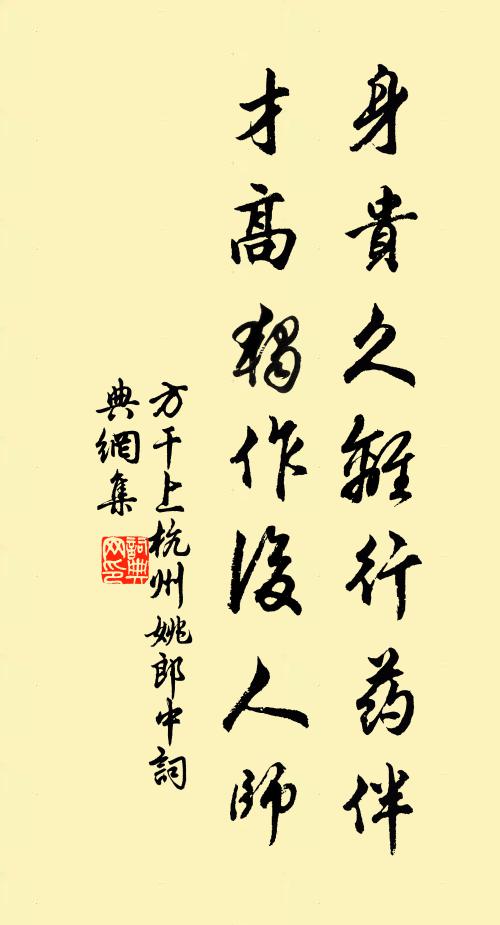 身貴久離行药伴
才高獨作後人師
方干上杭州姚郎中詞
典網集
詞典網印